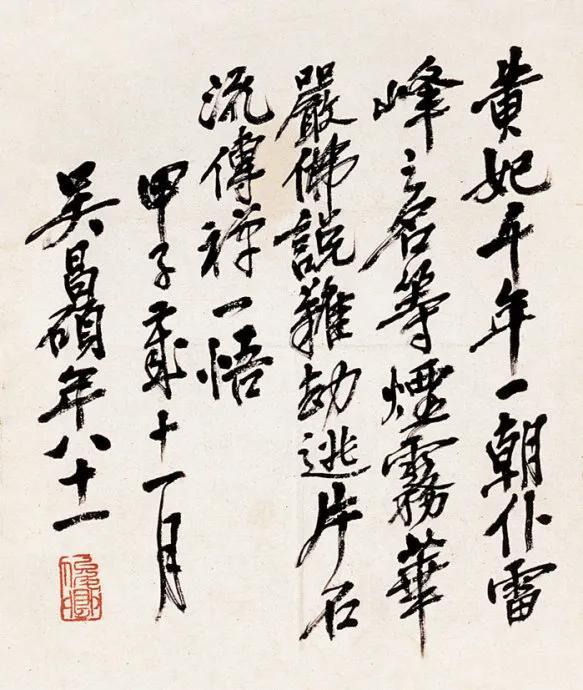 黄妃千年一朝仆雷
峰之名等煙霧華
嚴佛說難劫逃片石
流傳禪一悟
甲子歲十一月
吴昌碩年八十一